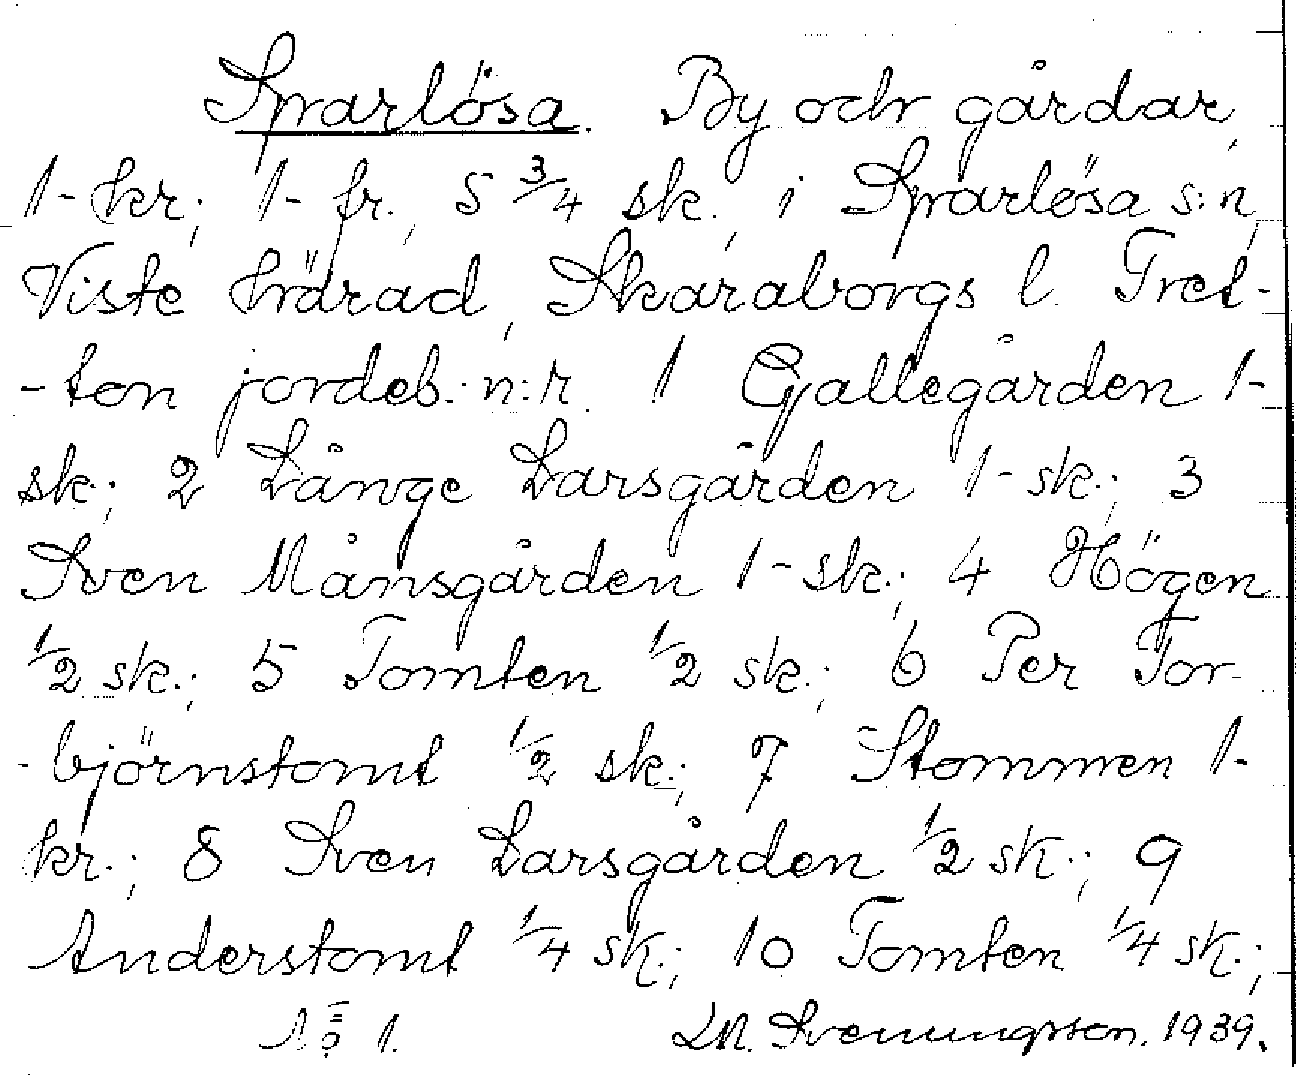 Sparlösa. By och gårdar,
1- kr; 1- fr., 5 3/4 sk. i Sparlösa s:n,
Viste härad, Skaraborgs l. Tret-
-ton jordeb. n:r. 1 Gallegården 1-
sk.; 2 Långe Larsgården 1- sk.; 3
Sven Månsgården 1- sk.; 4 Högen
1/2 sk.; 5 Tomten 1/2 sk.; 6 Per Tor-
-björnstomt 1/2 sk.; 7 Stommen 1-
kr.; 8 Sven Larsgården 1/2 sk.; 9
Anderstomt 1/4 sk.; 10 Tomten 1/4 sk.;
No 1. Svenungsson. 1939.